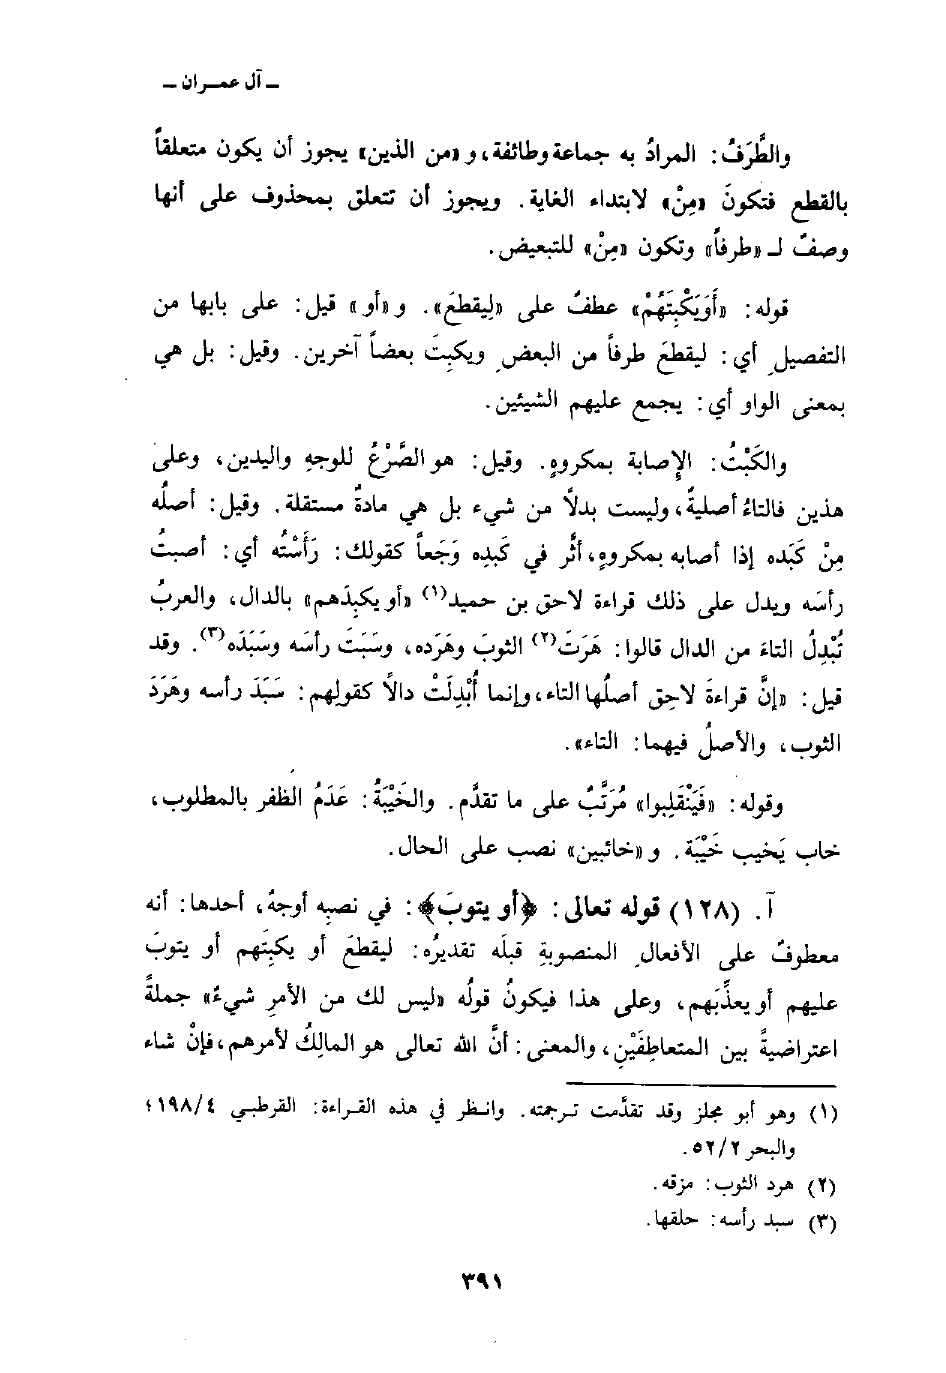 ـ آل عمـران ـ
والطَّرَفُ: المرادُ به جماعة وطائفة، و «من الذين» يجوز أن يكون متعلقاً
بالقطع فتكونَ «مِنْ» لابتداء الغاية. ويجوز أن تتعلق بمحذوف على أنها
وصفٌ لـ «طرفاً» وتكون «مِنْ» للتبعيض.
قوله: «أَوَيَكْبِتَهُمْ» عطفٌ على «لِيقطعَ». و «أو» قيل: على بابها من
التفصيلِ أي: ليقطعَ طرفاً من البعضِ ويكبِتَ بعضاً آخرين. وقيل: بل هي
بمعنى الواو أي: يجمع عليهم الشيئين.
والكَبْتُ: الإصابة بمكروهٍ. وقيل: هو الصَّرْعُ للوجهِ واليدين، وعلى
هذين فالتاءُ أصليةٌ، وليست بدلاً من شيء بل هي مادةٌ مستقلة. وقيل: أصلُه
مِنْ كَبَده إذا أصابه بمكروهٍ، أثَّر في كَبدِه وَجَعاً كقولك: رَأَسْته أي: أصبتُ
رأسَه ويدل على ذلك قراءة لاحق بن حميد(١) «أو يكبِدَهم» بالدال، والعربُ
تُبْدِلُ التاءَ من الدال قالوا: هَرَتَ(٢) الثوبَ وهَرَده، وسَبَتَ رأسَه وسَبَدَه(٣). وقد
قيل: «إنَّ قراءةَ لاحِق أصلُها التاء، وإنما أُبْدِلَتْ دالاً كقولِهم: سَبَدَ رأسه وهَرَدَ
الثوب، والأصلُ فيهما: التاء».
وقوله: «فَيَنْقَلِبوا» مُرَتَّبٌ على ما تقدَّم. والخَيْبَةُ: عَدَمُ الظفر بالمطلوب،
خاب يَخيب خَيْبَة. و «خائبين» نصب على الحال.
آ. (١٢٨) قوله تعالى: ﴿أو يتوبَ﴾: في نصبِه أوجهٌ، أحدها: أنه
معطوفٌ على الأفعالِ المنصوبةِ قبلَه تقديرُه: ليقطعَ أو يكبِتَهم أو يتوبَ
عليهم أو يعذِّبَهم، وعلى هذا فيكونُ قولُه «ليس لك من الأمرِ شيءٌ» جملةً
اعتراضيةً بين المتعاطِفَيْنِ، والمعنى: أنَّ الله تعالى هو المالِكُ لأمرهم، فإنْ شاء
(١) وهو أبو مجلز وقد تقدَّمت ترجمته. وانظر في هذه القراءة: القرطبي ١٩٨/٤؛
والبحر ٥٢/٢.
(٢) هرد الثوب: مزقه.
(٣) سبد رأسه: حلقها.
٣٩١